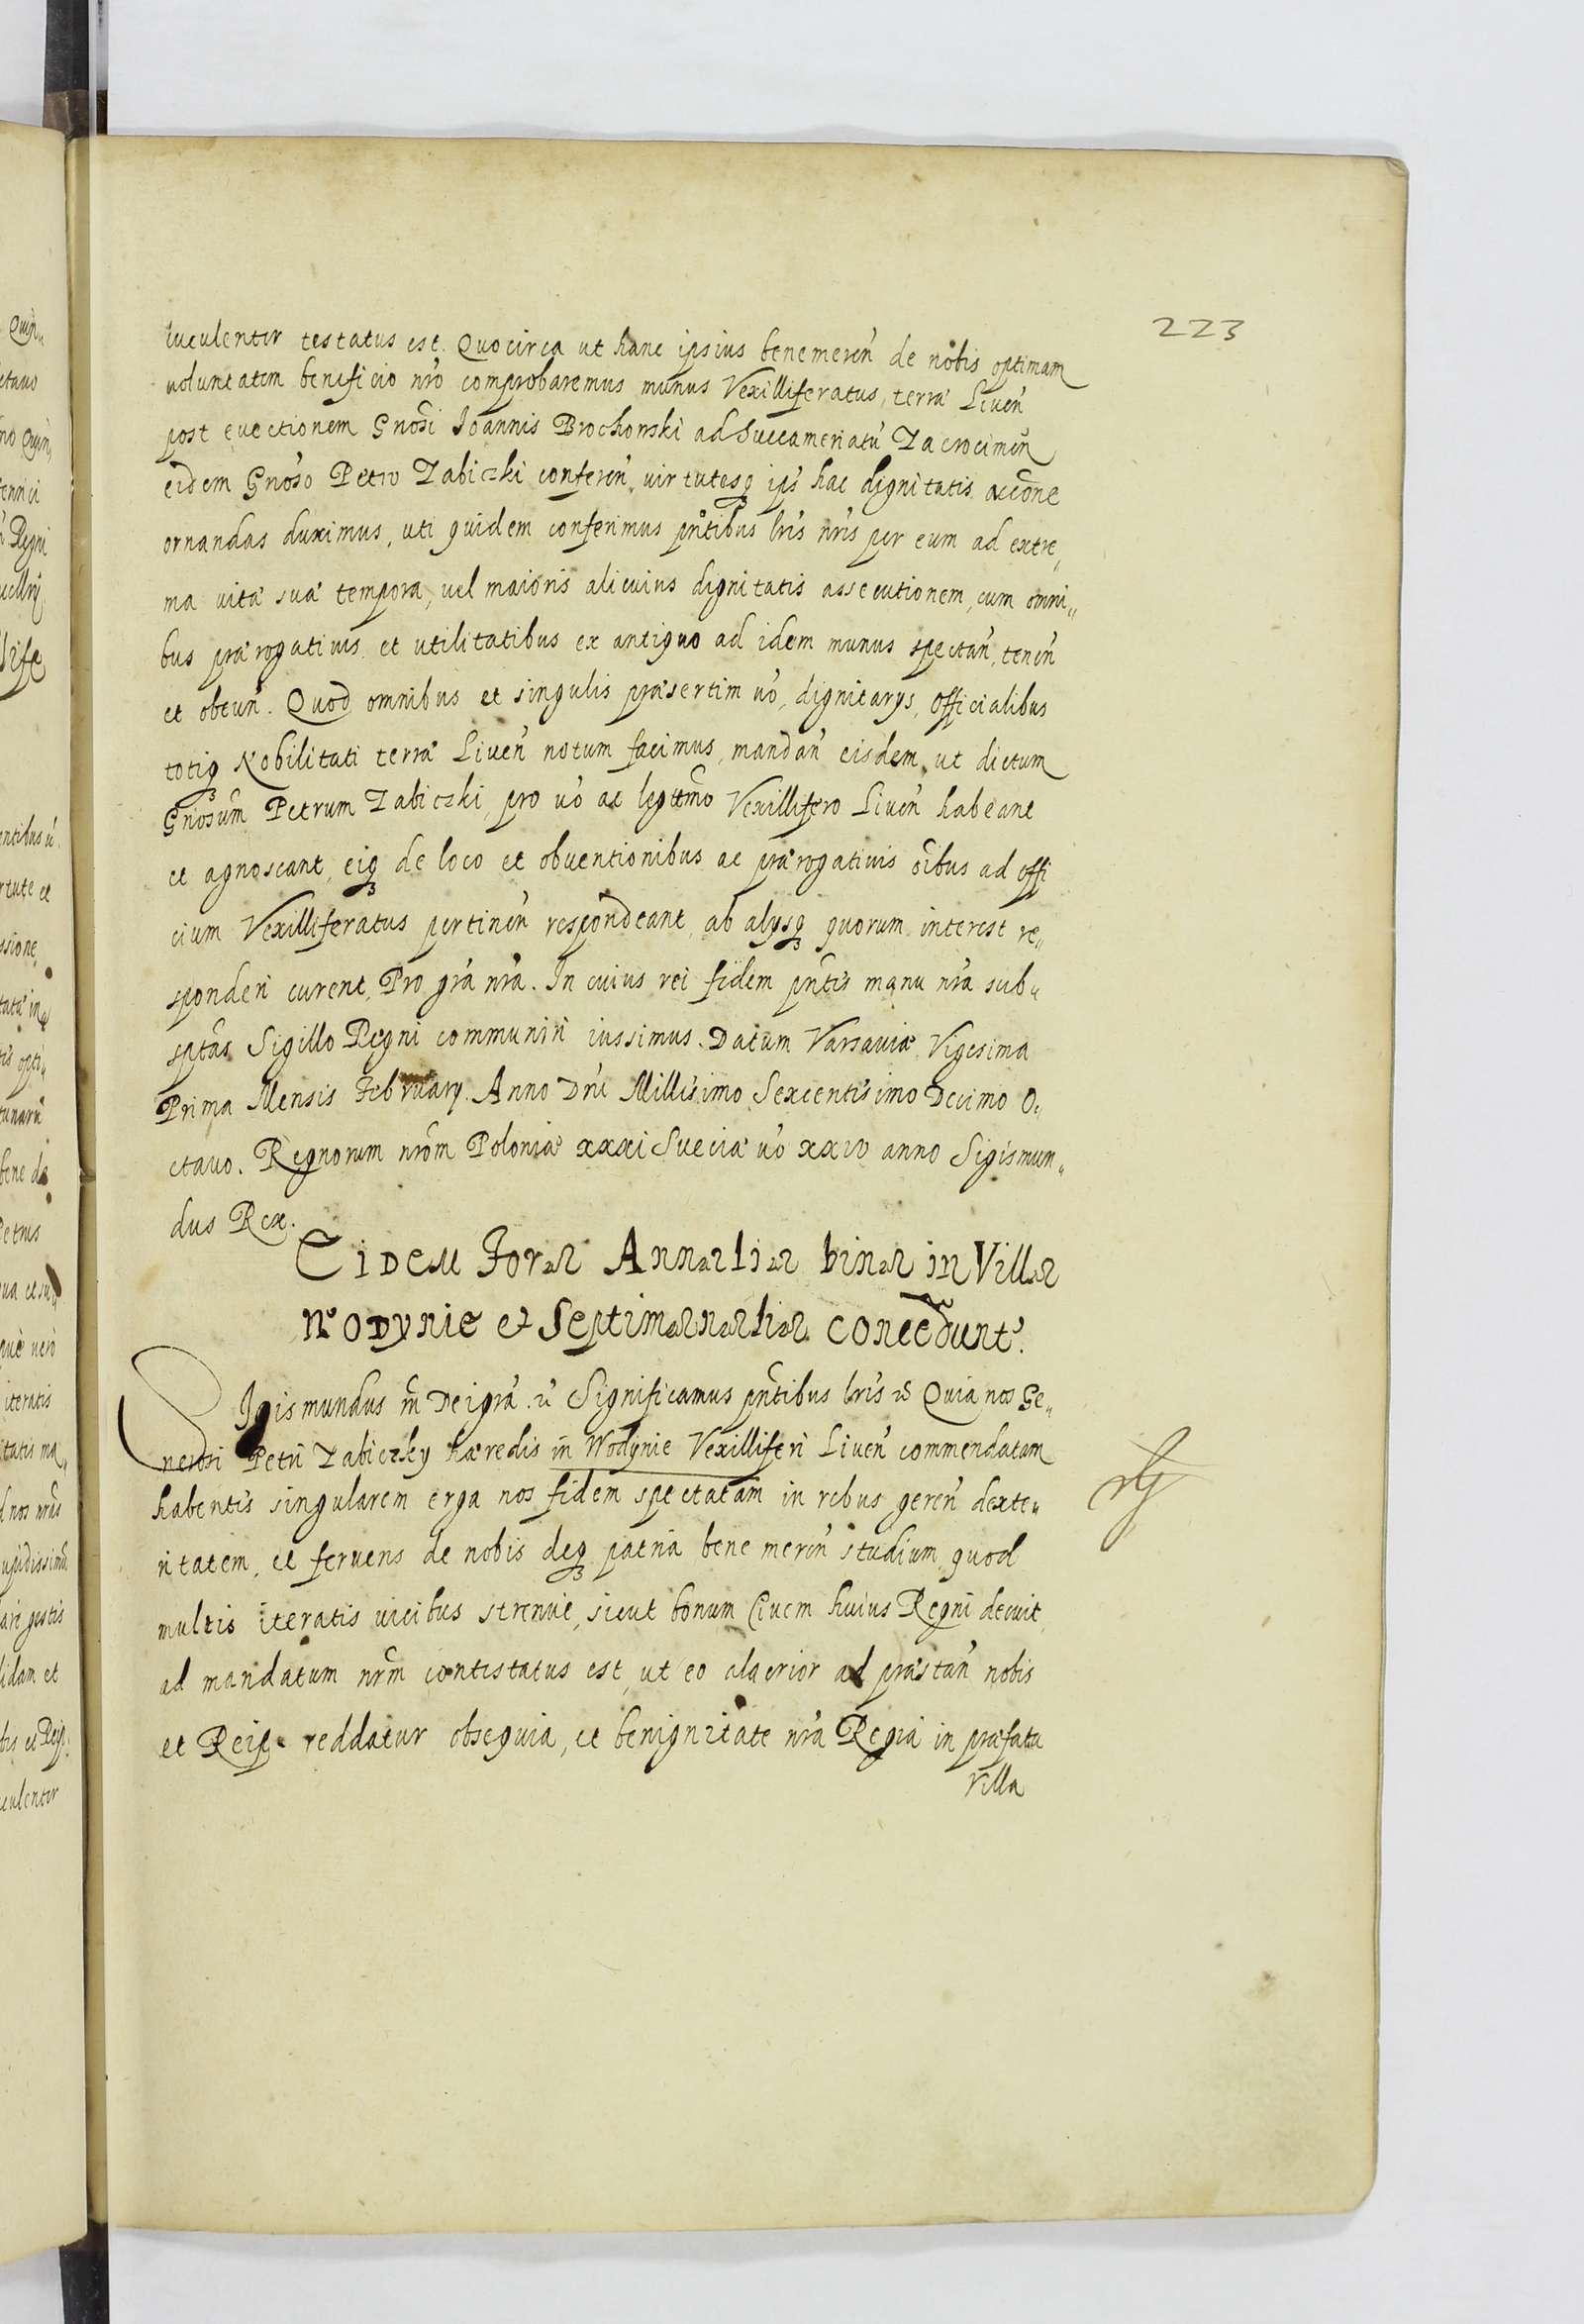 223
luculenter testatus est. Quocirca ut hanc ipsius benemeren̄ de nobis optimam
voluntatem beneficio nr̄o comprobaremus munus Vexilliferatus, terræ Liven̄
post evectionem Gnōsi Joannis Brochowski ad Succameriatū Zacrocimen̄
eidem Gnōso Petro Zabiczki conferen̄, virtutesq3 ips̄ hac dignitatis accōne
ornandas duximus, uti quidem conferimus pn̄tibus lr̄is nr̄is per eum ad extre„
ma vitæ suæ tempora, vel maioris alicuius dignitatis assecutionem, cum omni„
bus prærogativis et utilitatibus ex antiquo ad idem munus spectan̄, tenen̄
et obtun̄. Quod omnibus et singulis præsertim vō, dignitarys, Officialibus
totiq3 Nobilitati terræ Liven̄ notum facimus, mandan̄ eisdem, ut dictum
Gnōsum Petrum Zabiczki, pro vō ac legittmo Vexillifero Liven̄ habeant
et agnoscant, eiq3 de loco et obventionibus ac prærogativis oībus ad offi
cium Vexilliferatus pertinen̄ respondeant, ab alysq3 quorum interest re„
sponderi curent, Pro grā nr̄a. In cuius rei fidem pn̄tis manu nr̄a sub„
sptas Sigillo Regni communiri iussimus. Datum Varsaviæ Vigesima
Prima Mensis February. Anno Dn̄i Millisimo Sexcentisimo Decimo O„
ctavo. Regnorum nr̄om Poloniæ xxxi Sueciæ vō xxiv anno Sigismun„
dus Rex.
Eidem Fora Annalia bina in Villa
Wodynie et Septimanalia concedunt'.
Sigismundus III Dei grā. r̄ Significamus pn̄tibus lr̄is r̄ Quia nos Ge„
nerosi Petri Zabiczky hæredis in Wodynie Vexilliferi Liven̄ commendatam
habentis singularem erga nos fidem spectatam in rebus geren̄ dexte„
ritatem, et fervens de nobis deq3 patria bene meren̄ studium, quod
multis iteratis vicibus strenue, sicut bonum Civem huius Regni decuit,
ad mandatum nr̄m contestatus est, ut eo alacrior ad præstan̄ nobis
et Reip. reddatur obsequia, et benignitate nr̄a Regia in præfata
Villa